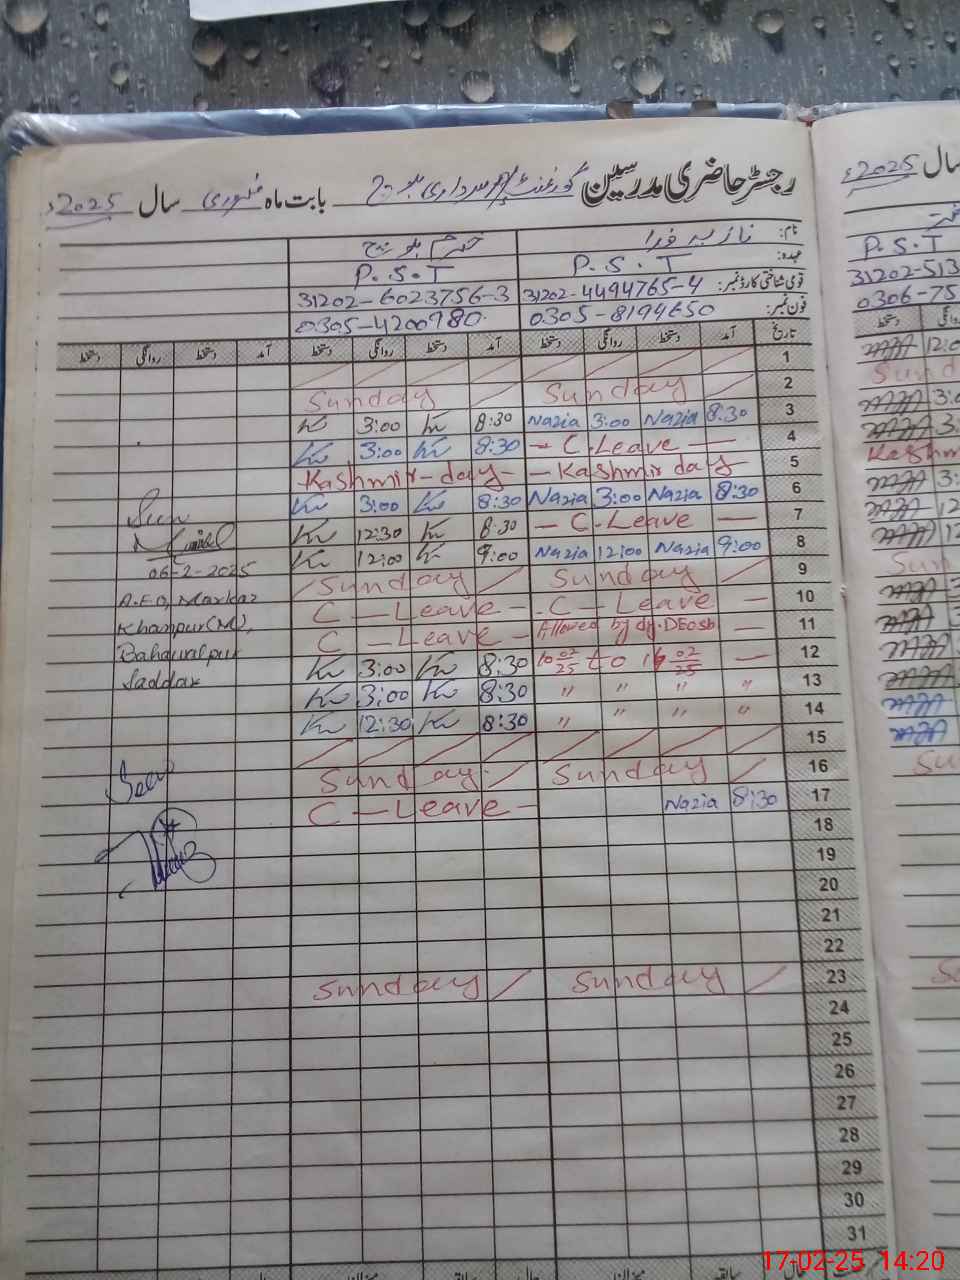 رجسٹر حاضری مدرسین گورنمنٹ بابت ماہ فروری سال 2025ء
نام: نازیہ
عہدہ: P.S.T P.S.T
قومی شناختی کارڈ نمبر: 31202-4494765-4 31202-6023756-3
فون نمبر: 0305-8194650 0305-4200780
تاریخ آمد دستخط روانگی دستخط آمد دستخط روانگی دستخط آمد دستخط روانگی دستخط
1
2 Sunday Sunday
3 8:30 Nazia 3:00 Nazia 8:30 3:00
4 C.Leave 8:30 3:00
5 Kashmir day Kashmir-day
6 8:30 Nazia 3:00 Nazia 8:30 3:00
7 C-Leave 8:30 12:30
8 9:00 Nazia 12:00 Nazia 9:00 12:00
9 Sunday Sunday
10 C-Leave C-Leave
11 Allowed by dy.DEOsb C-Leave
12 10 02/25 to 02/25 8:30 3:00
13 " " " " 8:30 3:00
14 " " " " 8:30 12:30
15
16 Sunday Sunday
17 8:30 Nazia C-Leave
18
19
20
21
22
23 Sunday Sunday
24
25
26
27
28
29
30
31
Seen
06-2-2025
A.E.O, Markaz
Khanpur(M),
Bahawalpur
Saddar
Seen
سال 2025ء
P.S.T
31202-513
0306-75
دستخط
12:0
Sund
3:0
3:
Kashm
3:
12
12
Sun
Su
17-02-25 14:20